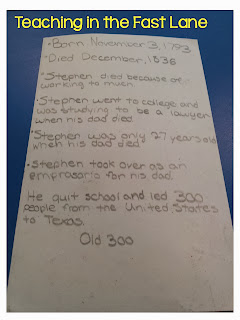 Teaching in the Fast Lane
• Born November 3, 1793
• Died December, 1836
• Stephen died because of
working to much
• Stephen went to college and
was studying to be a lawyer
when his dad died
• Stephen was only 27 years old
when his dad died
• Stephen took over as an
empresario for his dad.
He quit school and led 300
people from the United States
to Texas.
Old 300